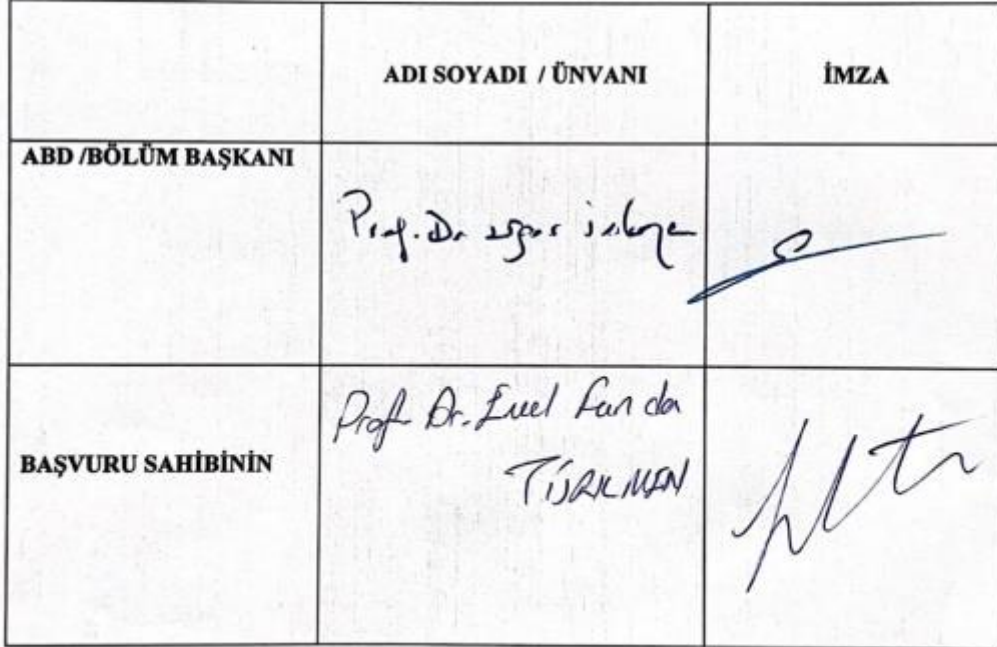 ADI SOYADI / ÜNVANI
İMZA
ABD /BÖLÜM BAŞKANI
Prof. Dr
BAŞVURU SAHİBİNİN
Prof. Dr. Funda
TÜRKMEN